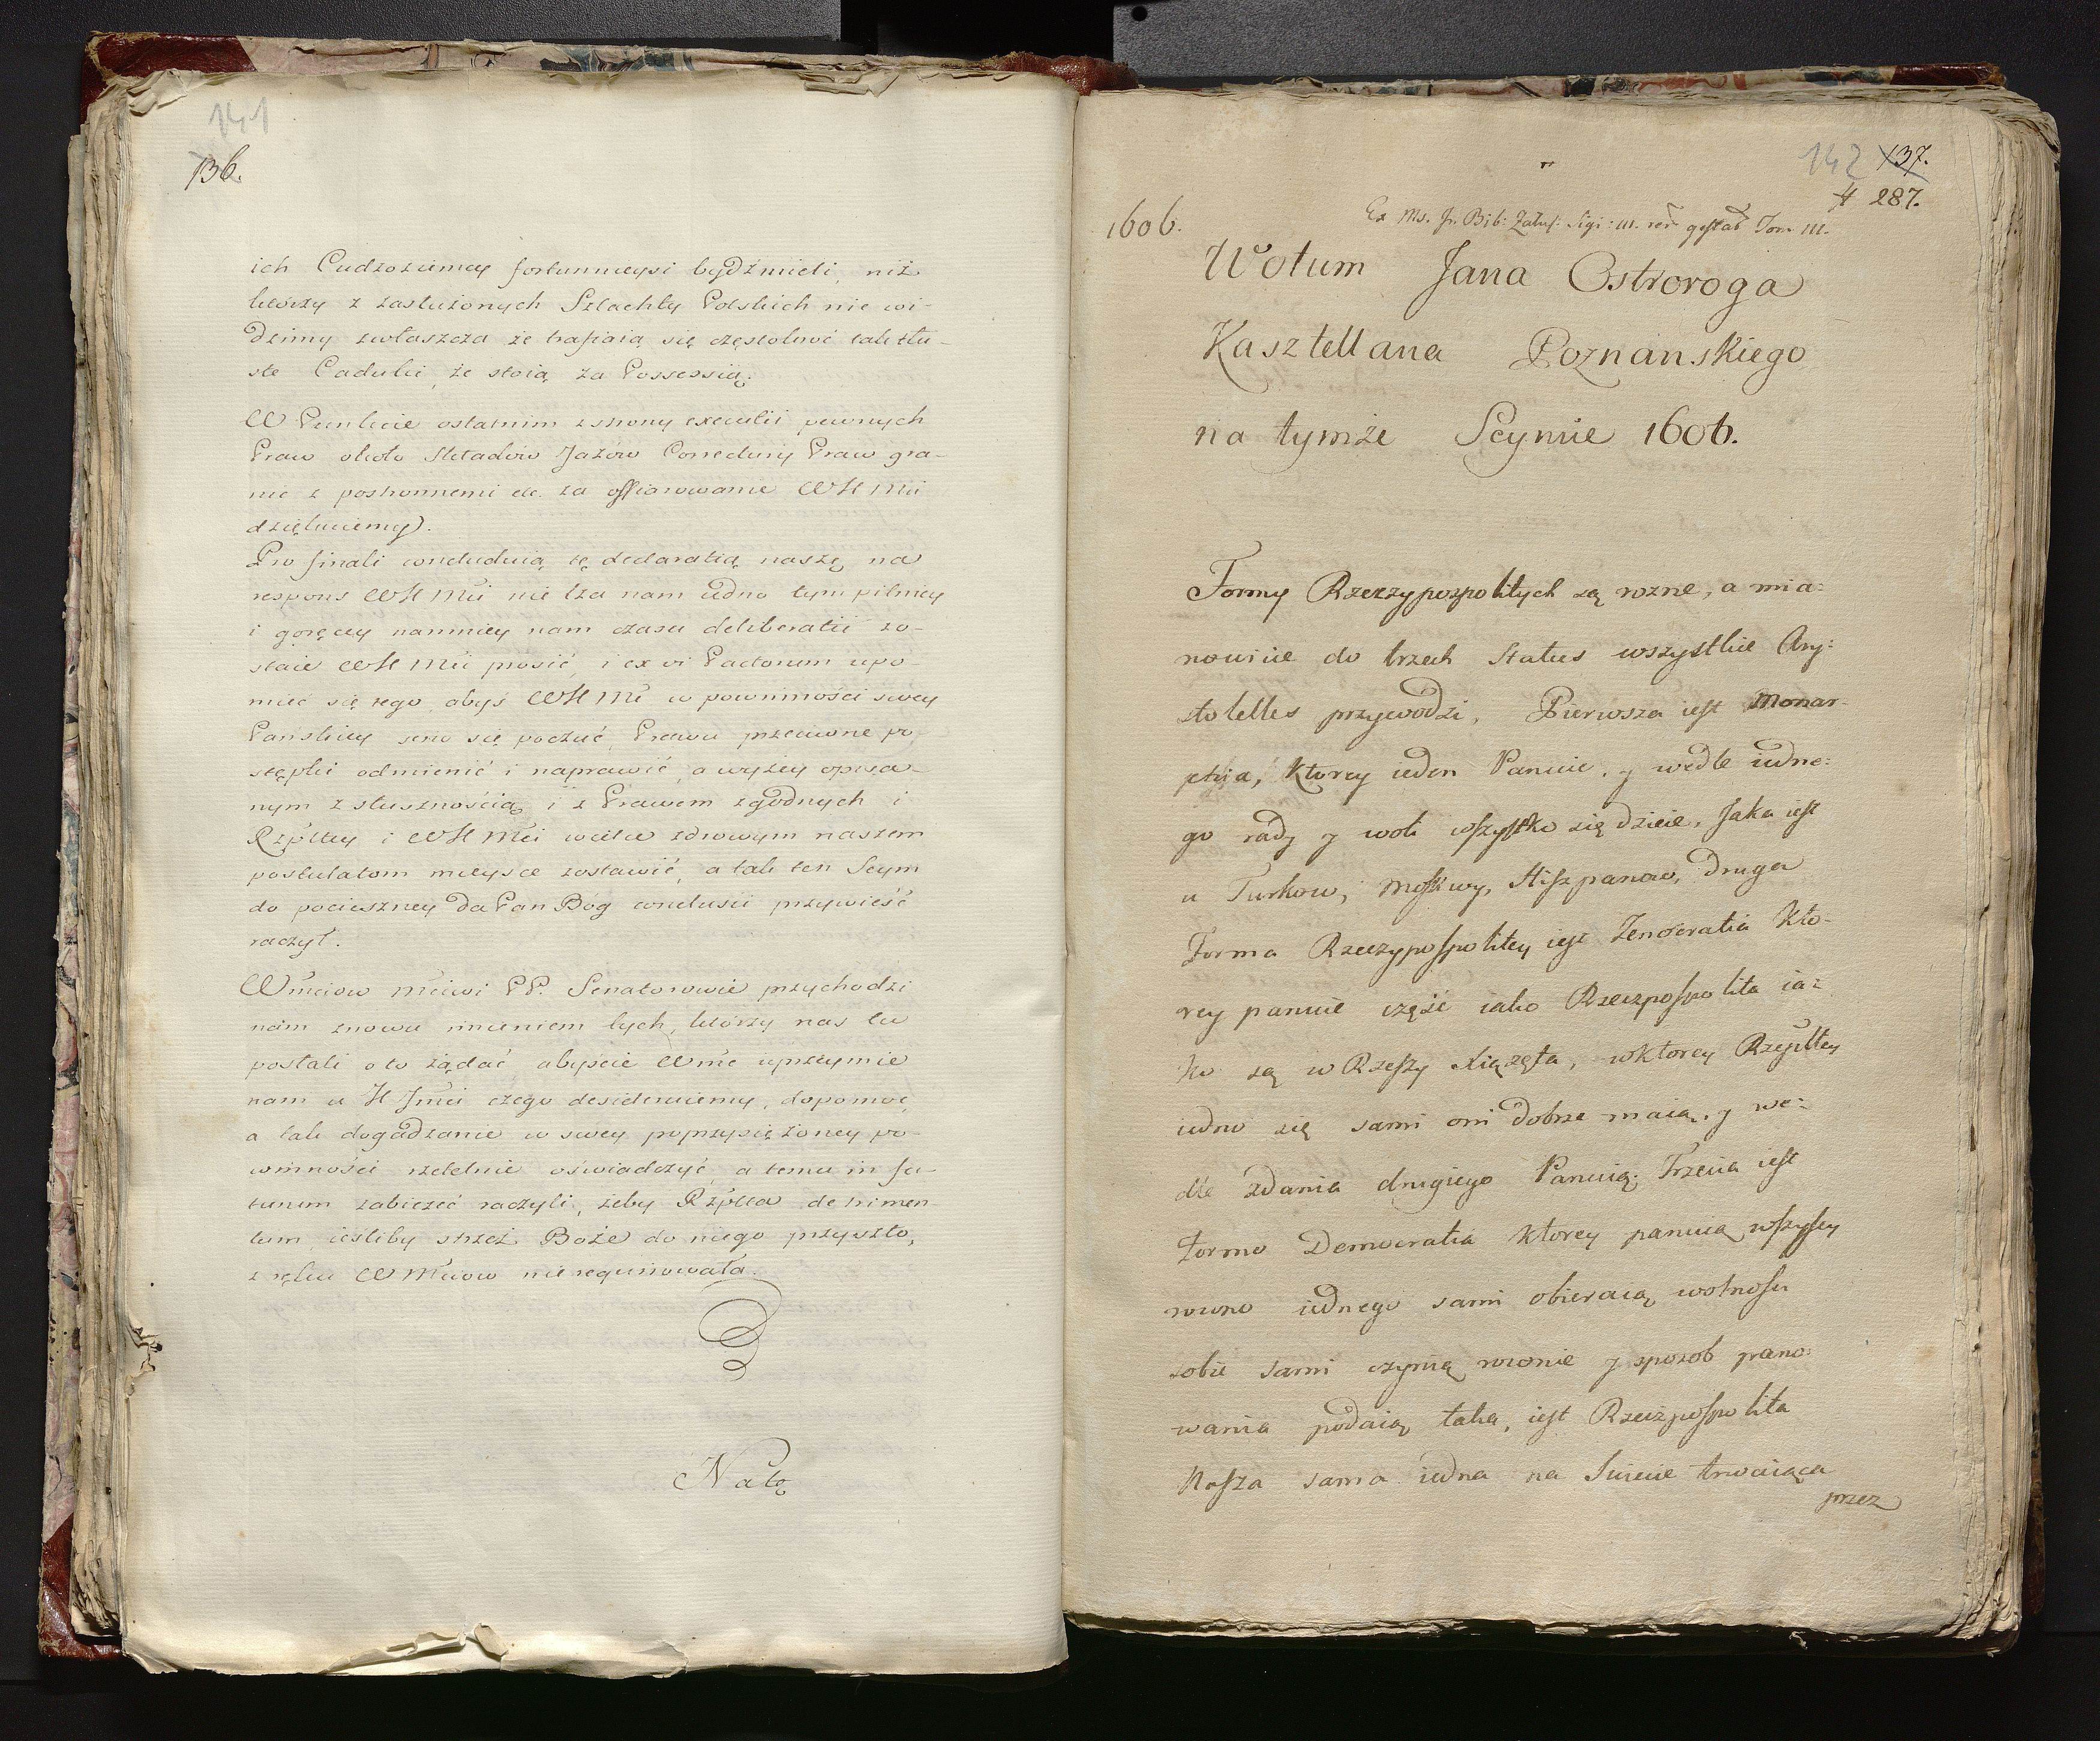 141
136.
ich Cudzoziemcy fortunnieysi bydź mieli, niż
którzy z zasłużonych Szlachty Polskich nie wi-
dzimy zwłaszcza że trafiaią się częstokroć tak tłu-
ste Caduki, że stoią za Possessią.
W Punkcie ostatnim z strony executii pewnych
Praw około Składów Jazów Correctury Praw gra-
nic z postronnemi etc. za offiarowanie WKMci
dziękuiemy.
Pro finali concluduiąc tę declaratią naszę na
respons WKMci nie lza nam iedno tym pilniey
i goręcey nam czasu deliberatii zo-
staie WKMci prosić, i ex vi Pactorum upo-
mieć się tego, abyś WKMć w powinności swey
Pańskiey się poczuć, Prawu przeciwne po-
stępki odmienić i naprawić, a wyżey opisa-
nym z słusznością, i z Prawem zgodnych i
Rzpltey i WKMci wielce zdrowym naszem
postulatom mieysce zostawić, a tak ten Seym
do pocieszney da Pan Bóg conclusii przywieść
raczył.
Wmciow mciwi PP. Senatorowie przychodzi
nam znowu imieniem tych, którzy nas tu
posłali o to żądać abyście Wmć uprzeymie
nam u KJmci czego desideruiemy, dopomoc,
a tak dogadzanie w swey poprzysiężoney po-
winności rzetelnie oświadczyć, a temu in fu-
turum zabieżeć raczyli, żeby Rzplta detrimen
tum, iesliby strzeż Boże do niego przyszło,
z ręku WMciow nie requirowała.
Na tę
142 137.
# 287.
1606.
Ex Ms. Jr. Bib: Załus: Sigi: III. rer gestar Tom III.
Wotum Jana Ostroroga
Kasztellana Poznanskiego
na tymże Seymie 1606.
Formy Rzeczypospolitych są rozne, a mia:
nowicie do trzech Status wszystkie Ary:
stotelles przywodzi, Pierwsza iest Monar-
chia, Ktorey ieden Panuie, y wedle iedne:
go rady y woli wszystko się dzieie, Jaka iest
u Turkow, Moskwy, Hiszpanow, Druga
Forma Rzeczypospolitey iest Zenocratia Kto-
rey panuie część iako Rzeczpospolita ia:
ko są w Rzeszy Xiążęta, w ktorey Rzeplltey
iedno się sami oni dobrze maią, y we:
dle zdania drugiego Panuią; Trzecia iest
Forma Democratia Ktorey panuią wszyscy
rowno iednego sami obieraią wolnosci
sobie sami czynią rownie y sposob pano:
wania podaią taka, iest Rzeczpospolita
Nasza sama iedna na Swiecie trwaiąca
przez